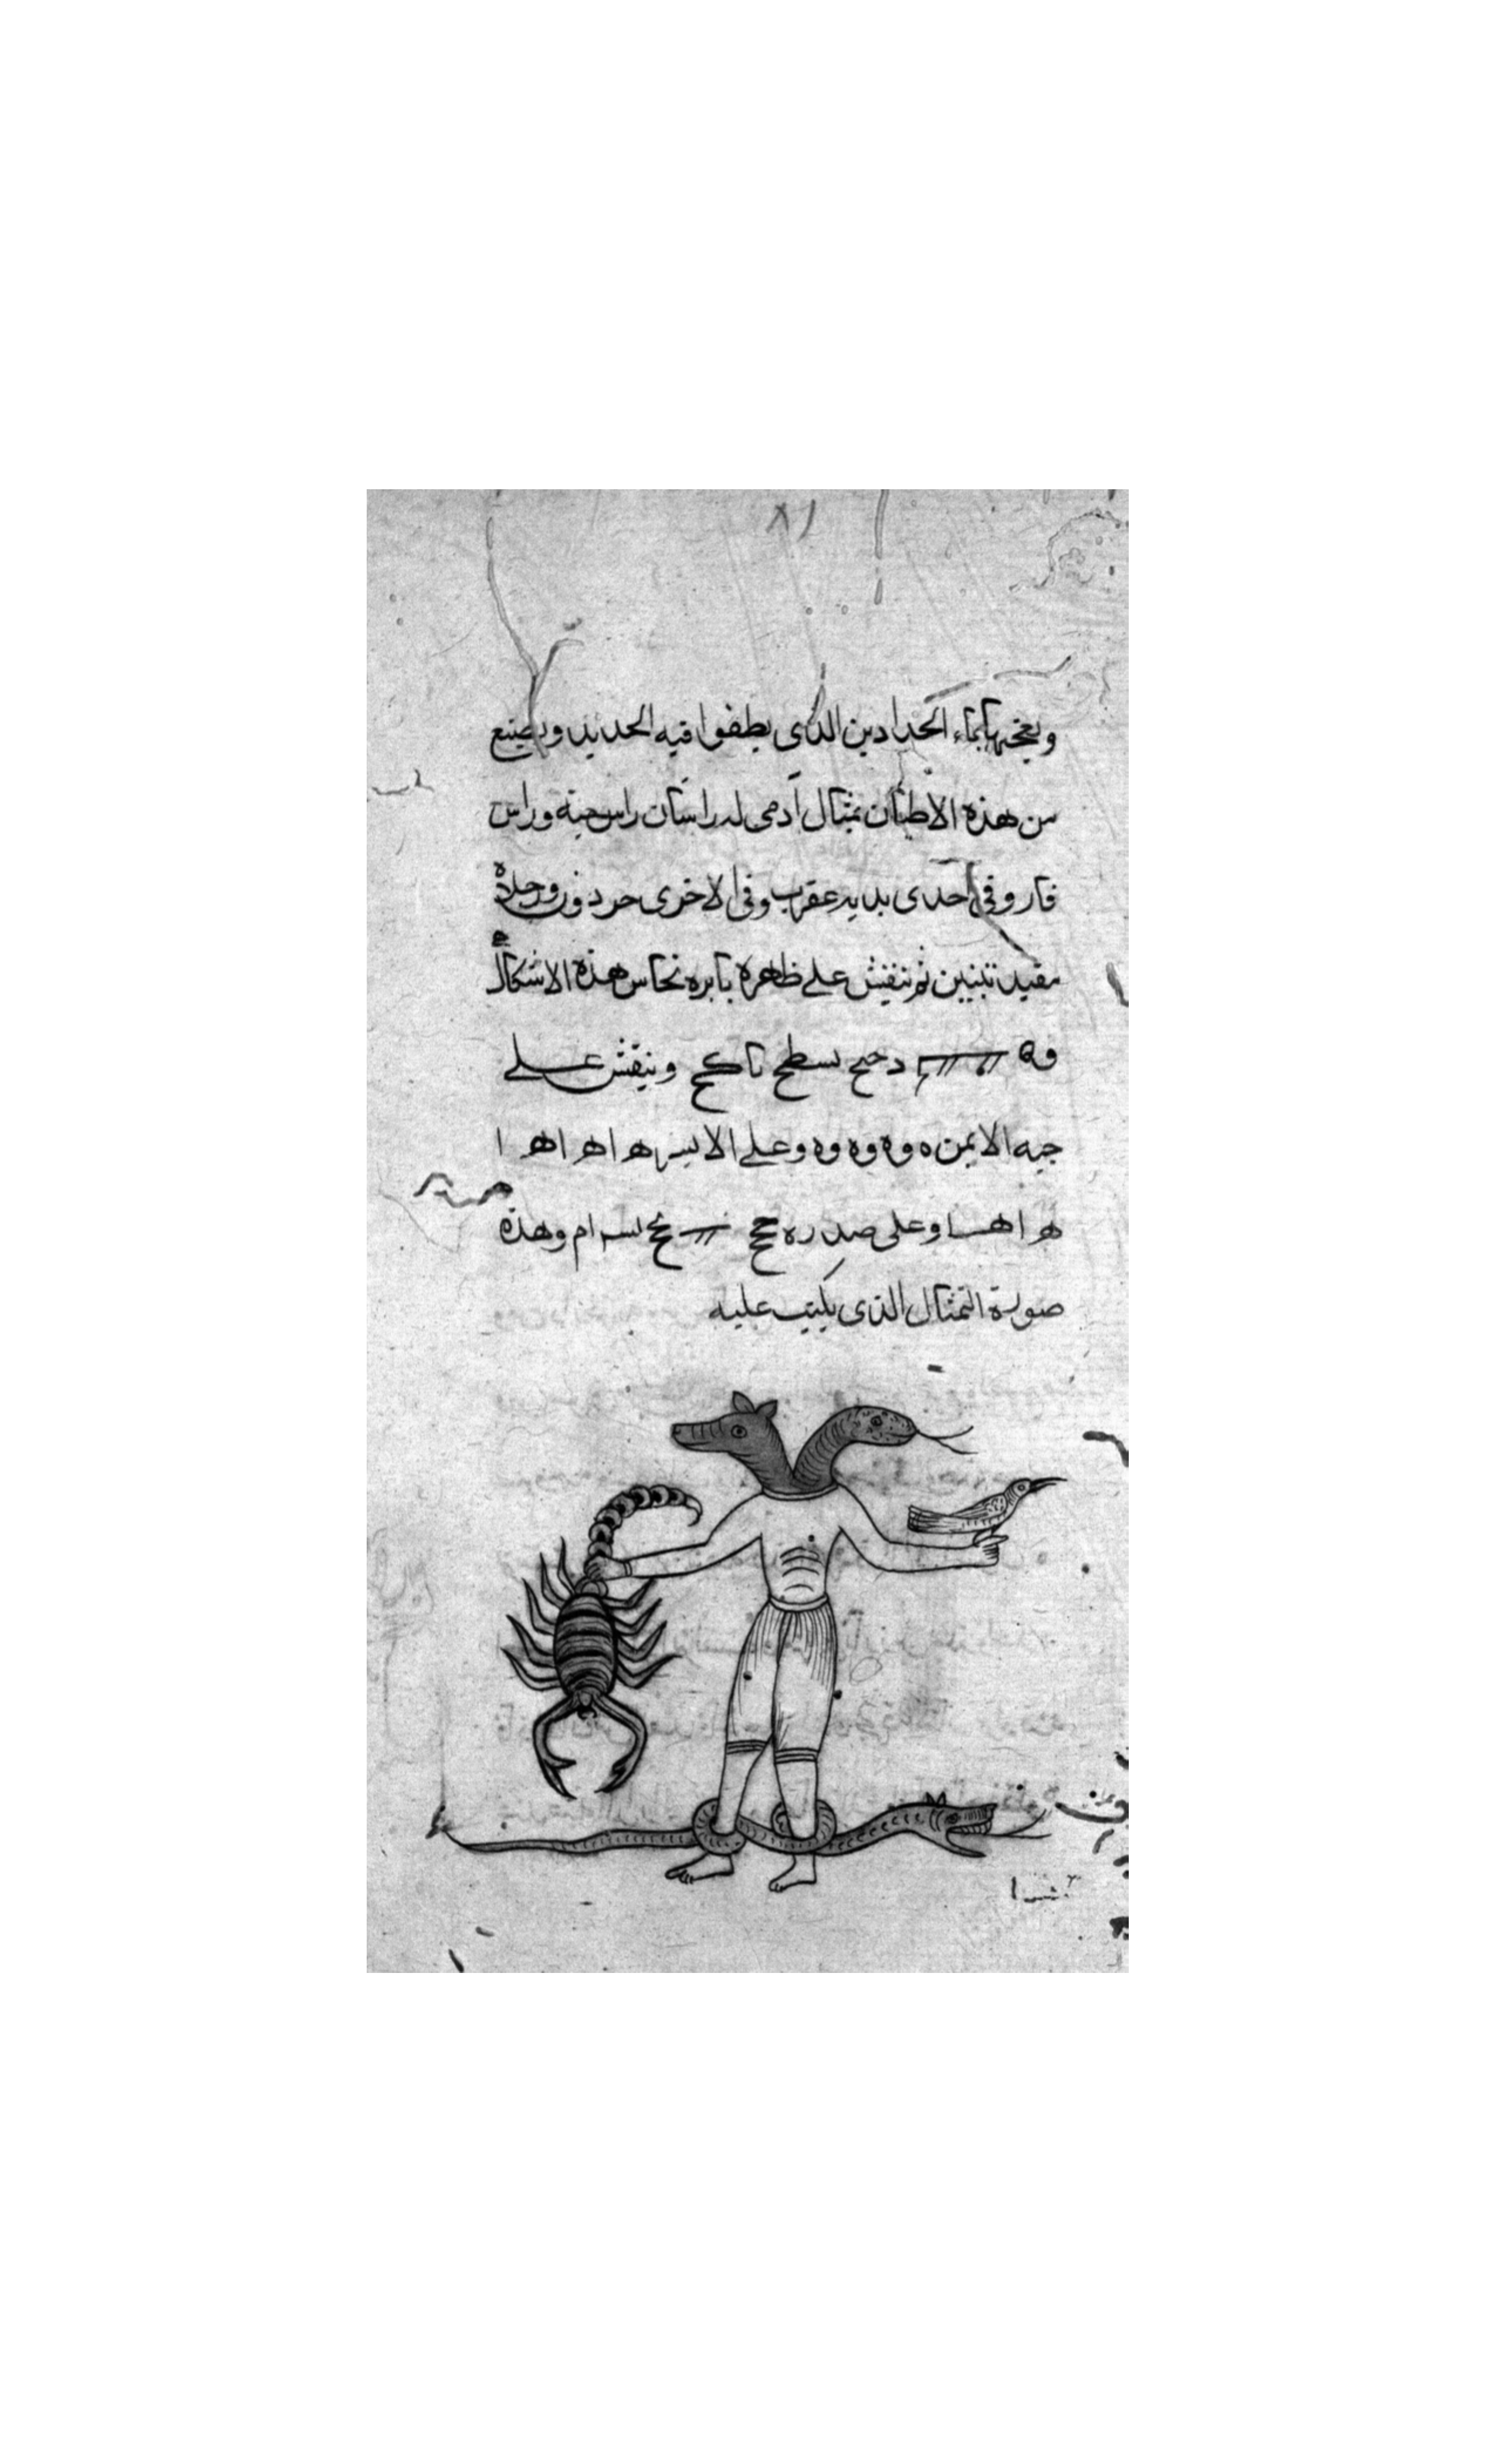 ويعجنها بماء الحدادين الذي يطفوا فيه الحديد ويصنع
من هذه الاطيان تمثال آدمي له راسان راس حية وراس
فار وفي احدى يديه عقرب وفي الاخرى حردون ورجلاه
مقيد تنين ثم تنقش على ظاهره بابره نحاس هذه الاشكال
وه وينقش على
جبه الايمن ه وه وه وه وعلى الايسر ها ها ها
ها ها وعلى صدره وهذه
صورة التمثال الذي يكتب عليه